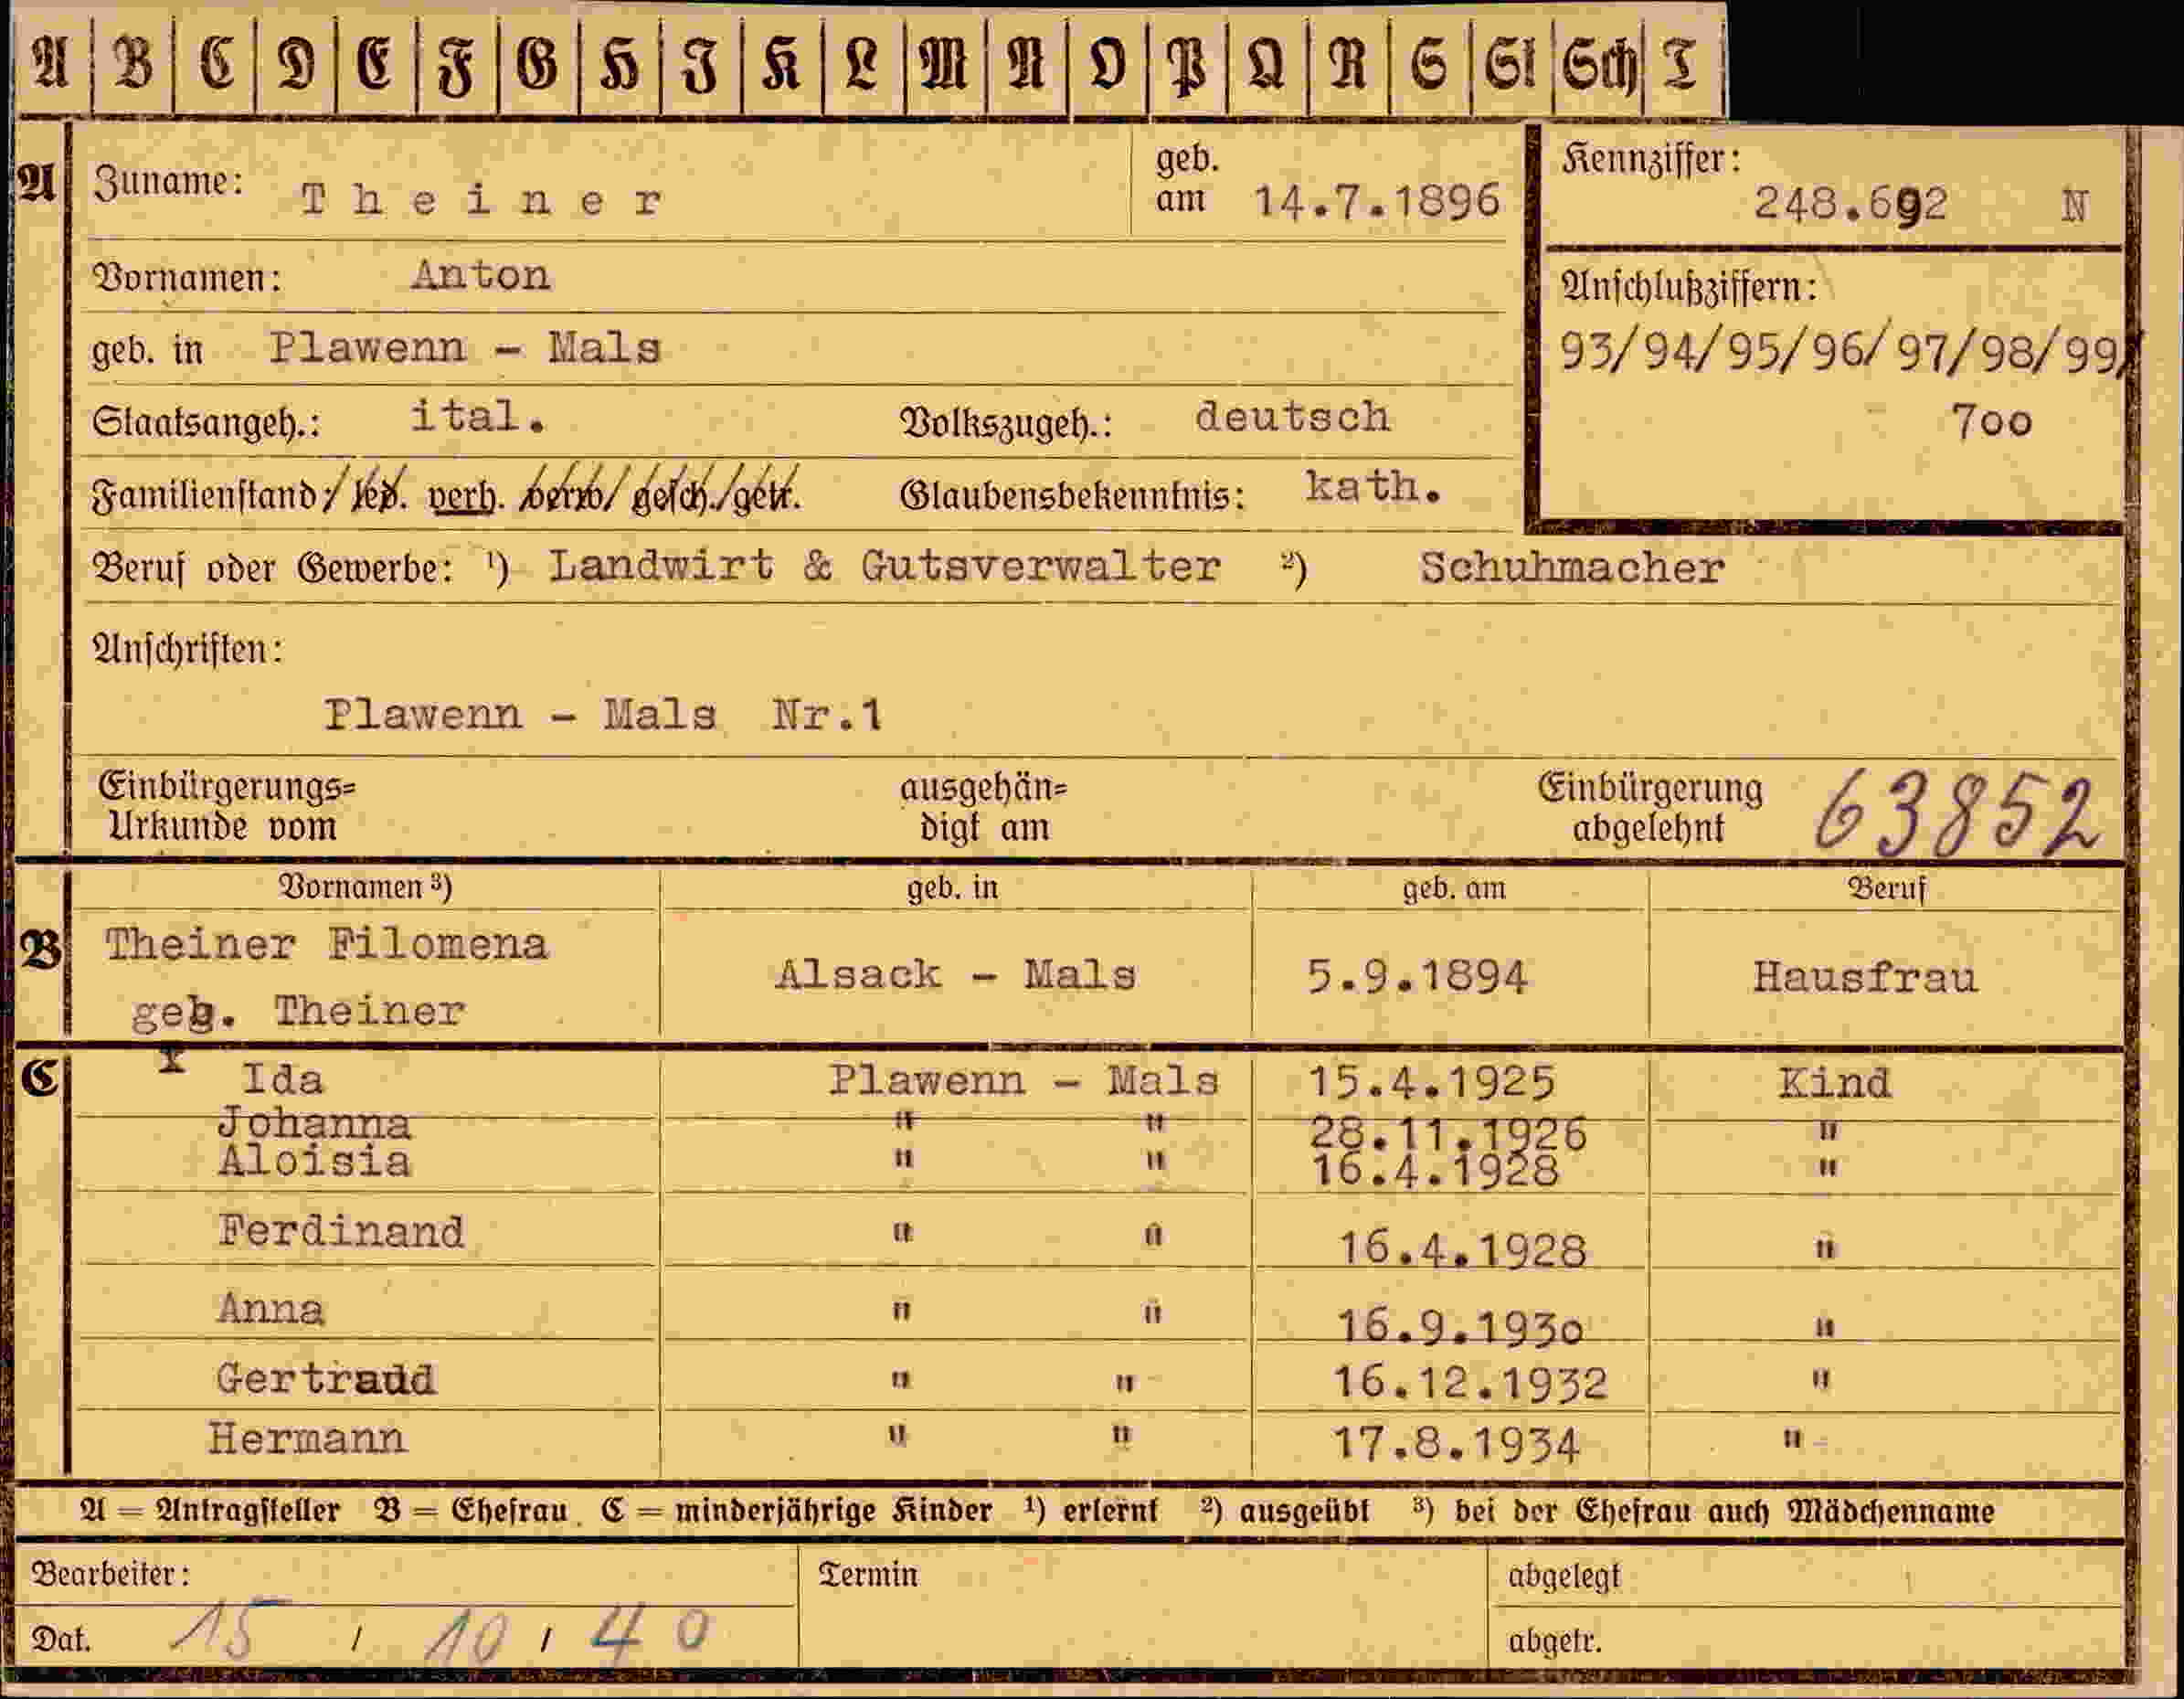 A B C D E F G H I K L M N O P Q R S St Sch T
A Zuname: Theiner geb. am 14.7.1896 Kennziffer: 248.692 N
Vornamen: Anton Anschlußziffern:
geb. in Plawenn - Mals 93/94/95/96/97/98/99/
Staatsangeh.: ital. Volkszugeh.: deutsch 700
Familienstand: led. verh. verw. gesch. getr. Glaubensbekenntnis: kath.
Beruf oder Gewerbe: ¹) Landwirt & Gutsverwalter ²) Schuhmacher
Anschriften:
Plawenn - Mals Nr.1
Einbürgerungs= ausgehän= Einbürgerung 63852
Urkunde vom digt am abgelehnt
Vornamen ³) geb. in geb. am Beruf
B Theiner Filomena Alsack - Mals 5.9.1894 Hausfrau
geb. Theiner
C Ida Plawenn - Mals 15.4.1925 Kind
Johanna " " 28.11.1926 "
Aloisia " " 16.4.1928 "
Ferdinand " " 16.4.1928 "
Anna " " 16.9.1930 "
Gertraud " " 16.12.1932 "
Hermann " " 17.8.1934 "
A = Antragsteller B = Ehefrau C = minderjährige Kinder ¹) erlernt ²) ausgeübt ³) bei der Ehefrau auch Mädchenname
Bearbeiter: Termin abgelegt
Dat. 15 / 10 / 40 abgetr.